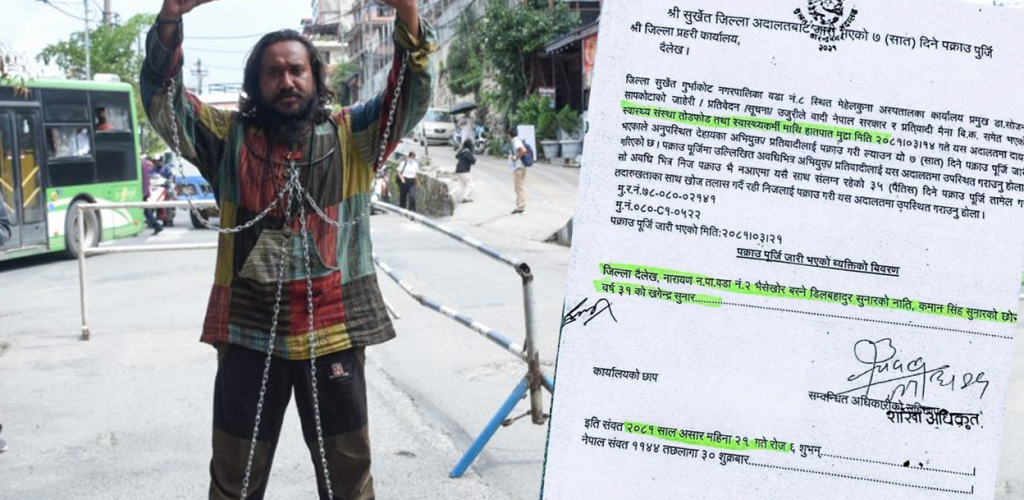 श्री सुर्खेत जिल्ला अदालतबाट जारी भएको ७ (सात) दिने पक्राउ पुर्जि
श्री जिल्ला प्रहरी कार्यालय,
दैलेख ।
२०२१
जिल्ला सुर्खेत गुर्भाकोट नगरपालिका वडा नं.८ स्थित मेहेलकुना अस्पतालका कार्यालय प्रमुख डा.सोज
सापकोटाको जाहेरी / प्रतिवेदन /सूचना/ उजुरीले वादी नेपाल सरकार र प्रतिवादी मैना बि.क. समेत भएको
स्वास्थ्य संस्था तोडफोड तथा स्वास्थ्यकर्मी माथि हातपात मुद्दा मिति २०८१।०३।१४ गते यस अदालतमा दायर
भएकोले अनुपस्थित देहायका अभियुक्त/ प्रतिवादीलाई पक्राउ गरी ल्याउन यो ७ (सात) दिने पक्राउ पूर्जि जारी
गरिएको छ। पक्राउ पूर्जिमा उल्लिखित अवधिभित्र अभियुक्त प्रतिवादीलाई यस अदालतमा उपस्थित गराउनु होला।
सो अवधि भित्र निज पक्राउ भै नआएमा यसै साथ संलग्न रहेको ३५ (पैतिस) दिने पक्राउ पूर्जि तामेल
तदारुखताका साथ खोज तलास गर्दै रही निजलाई पक्राउ गरी यस अदालतमा उपस्थित गराउनु होला।
मु.र.नं.७८-०८०-०२१४१
मु.नं.०८०-C१-०५२२
पक्राउ पूर्जि जारी भएको मिति:२०८१।०३।२१
पक्राउ पूर्जि जारी भएको ब्यक्तिको बिवरण
जिल्ला दैलेख, नारायण न.पा.वडा नं.२ भैसेखोर बस्ने डिलबहादुर सुनारको नाति, कमान सिंह सुनारको छोरा
वर्ष ३१ को खगेन्द्र सुनार
कार्यालयको छाप
सम्वन्धित अधिकारीको
शाखा अधिकृत
इति संवत २०८१ साल असार महिना २१ गते रोज ६ शुभम्
नेपाल संवत ११४४ तछलागा ३० शुक्रबार